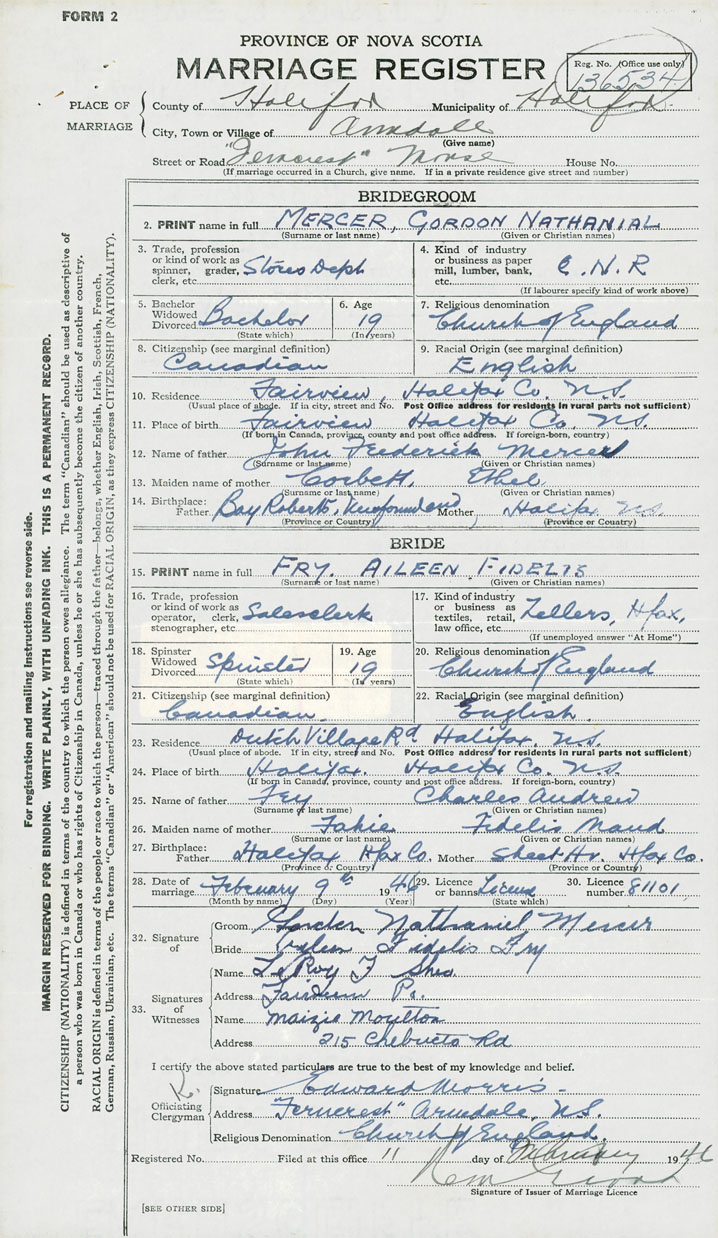 FORM 2
PROVINCE OF NOVA SCOTIA
MARRIAGE REGISTER
Reg. No. (Office use only)
136534
PLACE OF MARRIAGE
County of Halifax Municipality of Halifax
City, Town or Village of Armdale
(Give name)
Street or Road "Ferncrest" House No.
(If marriage occurred in a Church, give name. If in a private residence give street and number)
BRIDEGROOM
2. PRINT name in full MERCER, GORDON NATHANIAL
(Surname or last name) (Given or Christian names)
3. Trade, profession or kind of work as spinner, grader, clerk, etc. Stores Dept
4. Kind of industry or business as paper mill, lumber, bank, etc. C.N.R
(If labourer specify kind of work above)
5. Bachelor Widowed Divorced Bachelor
(State which)
6. Age 19
(In years)
7. Religious denomination Church of England
8. Citizenship (see marginal definition) Canadian
9. Racial Origin (see marginal definition) English
10. Residence Fairview, Halifax Co. N.S.
(Usual place of abode. If in city, street and No. Post Office address for residents in rural parts not sufficient)
11. Place of birth Fairview Halifax Co. N.S.
(If born in Canada, province, county and post office address. If foreign-born, country)
12. Name of father John Frederick Mercer
(Surname or last name) (Given or Christian names)
13. Maiden name of mother Corbett, Ethel
(Surname or last name) (Given or Christian names)
14. Birthplace: Father Bay Roberts, Newfoundland Mother Halifax N.S.
(Province or Country) (Province or Country)
BRIDE
15. PRINT name in full FRY, AILEEN FIDELIS
(Surname or last name) (Given or Christian names)
16. Trade, profession or kind of work as operator, clerk, stenographer, etc. Salesclerk
17. Kind of industry or business as textiles, retail, law office, etc. Zellers, Hfax,
(If unemployed answer "At Home")
18. Spinster Widowed Divorced Spinster
(State which)
19. Age 19
(In years)
20. Religious denomination Church of England
21. Citizenship (see marginal definition) Canadian
22. Racial Origin (see marginal definition) English
23. Residence Dutch Village Rd Halifax N.S.
(Usual place of abode. If in city, street and No. Post Office address for residents in rural parts not sufficient)
24. Place of birth Halifax. Halifax Co. N.S.
(If born in Canada, province, county and post office address. If foreign-born, country)
25. Name of father Fry Charles Andrew
(Surname or last name) (Given or Christian names)
26. Maiden name of mother Fahie Fidelis Maud
(Surname or last name) (Given or Christian names)
27. Birthplace: Father Halifax Hfax Co. Mother Sheet Hr. Hfax Co.
(Province or Country) (Province or Country)
28. Date of marriage February 9th 1946
(Month by name) (Day) (Year)
29. Licence or banns License
(State which)
30. Licence number 81101
32. Signature of
Groom Gordon Nathaniel Mercer
Bride Aileen Fidelis Fry
33. Signatures of Witnesses
Name LeRoy F
Address Fairview
Name Maizie Moulton
Address 215 Chebucto Rd
I certify the above stated particulars are true to the best of my knowledge and belief.
Officiating Clergyman
Signature Edward Morris
Address "Ferncrest" Armdale, N.S.
Religious Denomination Church of England.
Registered No. Filed at this office 11 day of February 1946
Signature of Issuer of Marriage Licence
[SEE OTHER SIDE]
For registration and mailing instructions see reverse side.
MARGIN RESERVED FOR BINDING. WRITE PLAINLY, WITH UNFADING INK. THIS IS A PERMANENT RECORD.
CITIZENSHIP (NATIONALITY) is defined in terms of the country to which the person owes allegiance. The term "Canadian" should be used as descriptive of
a person who was born in Canada or who has rights of Citizenship in Canada, unless he or she has subsequently become the citizen of another country.
RACIAL ORIGIN is defined in terms of the people or race to which the person—traced through the father—belongs, whether English, Irish, Scottish, French,
German, Russian, Ukrainian, etc. The terms "Canadian" or "American" should not be used for RACIAL ORIGIN, as they express CITIZENSHIP (NATIONALITY).